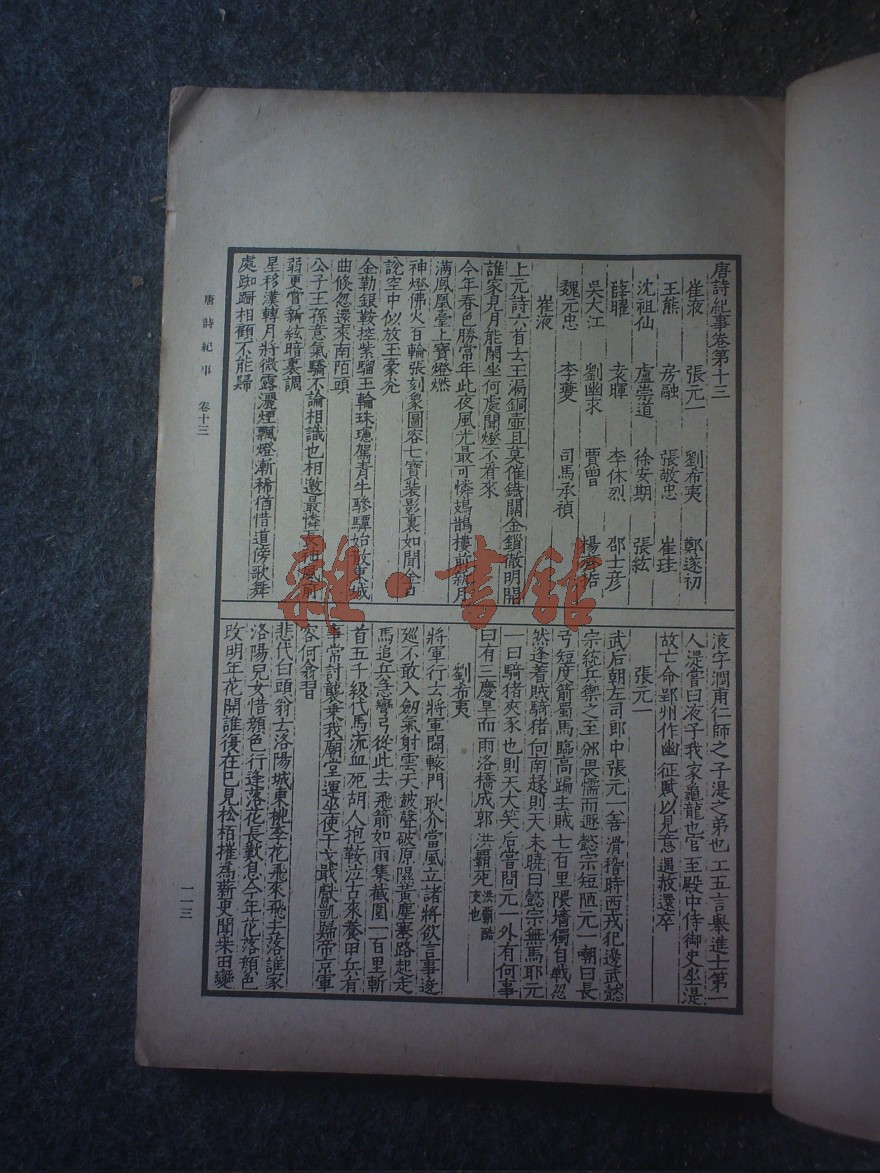 唐詩紀事卷第十三
崔液 張元一 劉希夷 鄭遂初
王熊 房融 張敬忠 崔珪
沈祖仙 盧崇道 徐安期 張紘
薛曜 袁暉 李休烈 邵士彥
吳大江 劉幽求 賈曾 楊齊哲
魏元忠 李夔 司馬承禎
崔液
上元詩六首云玉漏銅壺且莫催鐵關金鎖徹明開
誰家見月能閑坐何處聞燈不看來
今年春色勝當年此夜風光最可憐鳷鵲樓前新月
滿鳳凰臺上寶燈燃
神燈佛火百輪張刻象圖容七寶裝影裏如聞金口
說空中似放玉豪光
金勒銀鞍控紫騮玉輪珠幰駕青牛驂驔始散東城
曲倏忽還來南陌頭
公子王孫意氣驕不論相識也相邀最憐長袖風前
弱更賞新絃暗裏調
星移漢轉月將微露灑煙飄燈漸稀猶惜道傍歌舞
處踟躕相顧不能歸
液字潤甫仁師之子湜之弟也工五言舉進士第一
人湜嘗曰液子我家龜龍也官至殿中侍御史坐湜
故亡命郢州作幽征賦以見意遇赦還卒
張元一
武后朝左司郎中張元一善滑稽時西戎犯邊武懿
宗統兵禦之至邠畏懦而遯懿宗短陋元一嘲曰長
弓短度箭蜀馬臨高蹁去賊七百里隈墻獨自戰忽
然逢着賊騎猪向南趍則天未曉曰懿宗無馬耶元
一曰騎猪夾豕也則天大笑后嘗問元一外有何事
曰有三慶旱而雨洛橋成郭洪霸死洪霸酷吏也
劉希夷
將軍行云將軍闢轅門耿介當風立諸將欲言事逡
廵不敢入劒氣射雲天鼓聲破原隰黃塵塞路起走
馬追兵急彎弓從此去飛箭如雨集截圍一百里斬
首五千級代馬流血死胡人抱鞍泣古來養甲兵有
事常討襲乗我廟堂運坐使干戈戢獻凱歸帝京軍
容何翕習
悲代白頭翁云洛陽城東桃李花飛來飛去落誰家
洛陽兒女惜顏色行逢落花長歎息今年花落顏色
改明年花開誰復在已見松栢摧爲薪更聞桑田變
唐詩紀事 卷十三
一一三
雜·書館